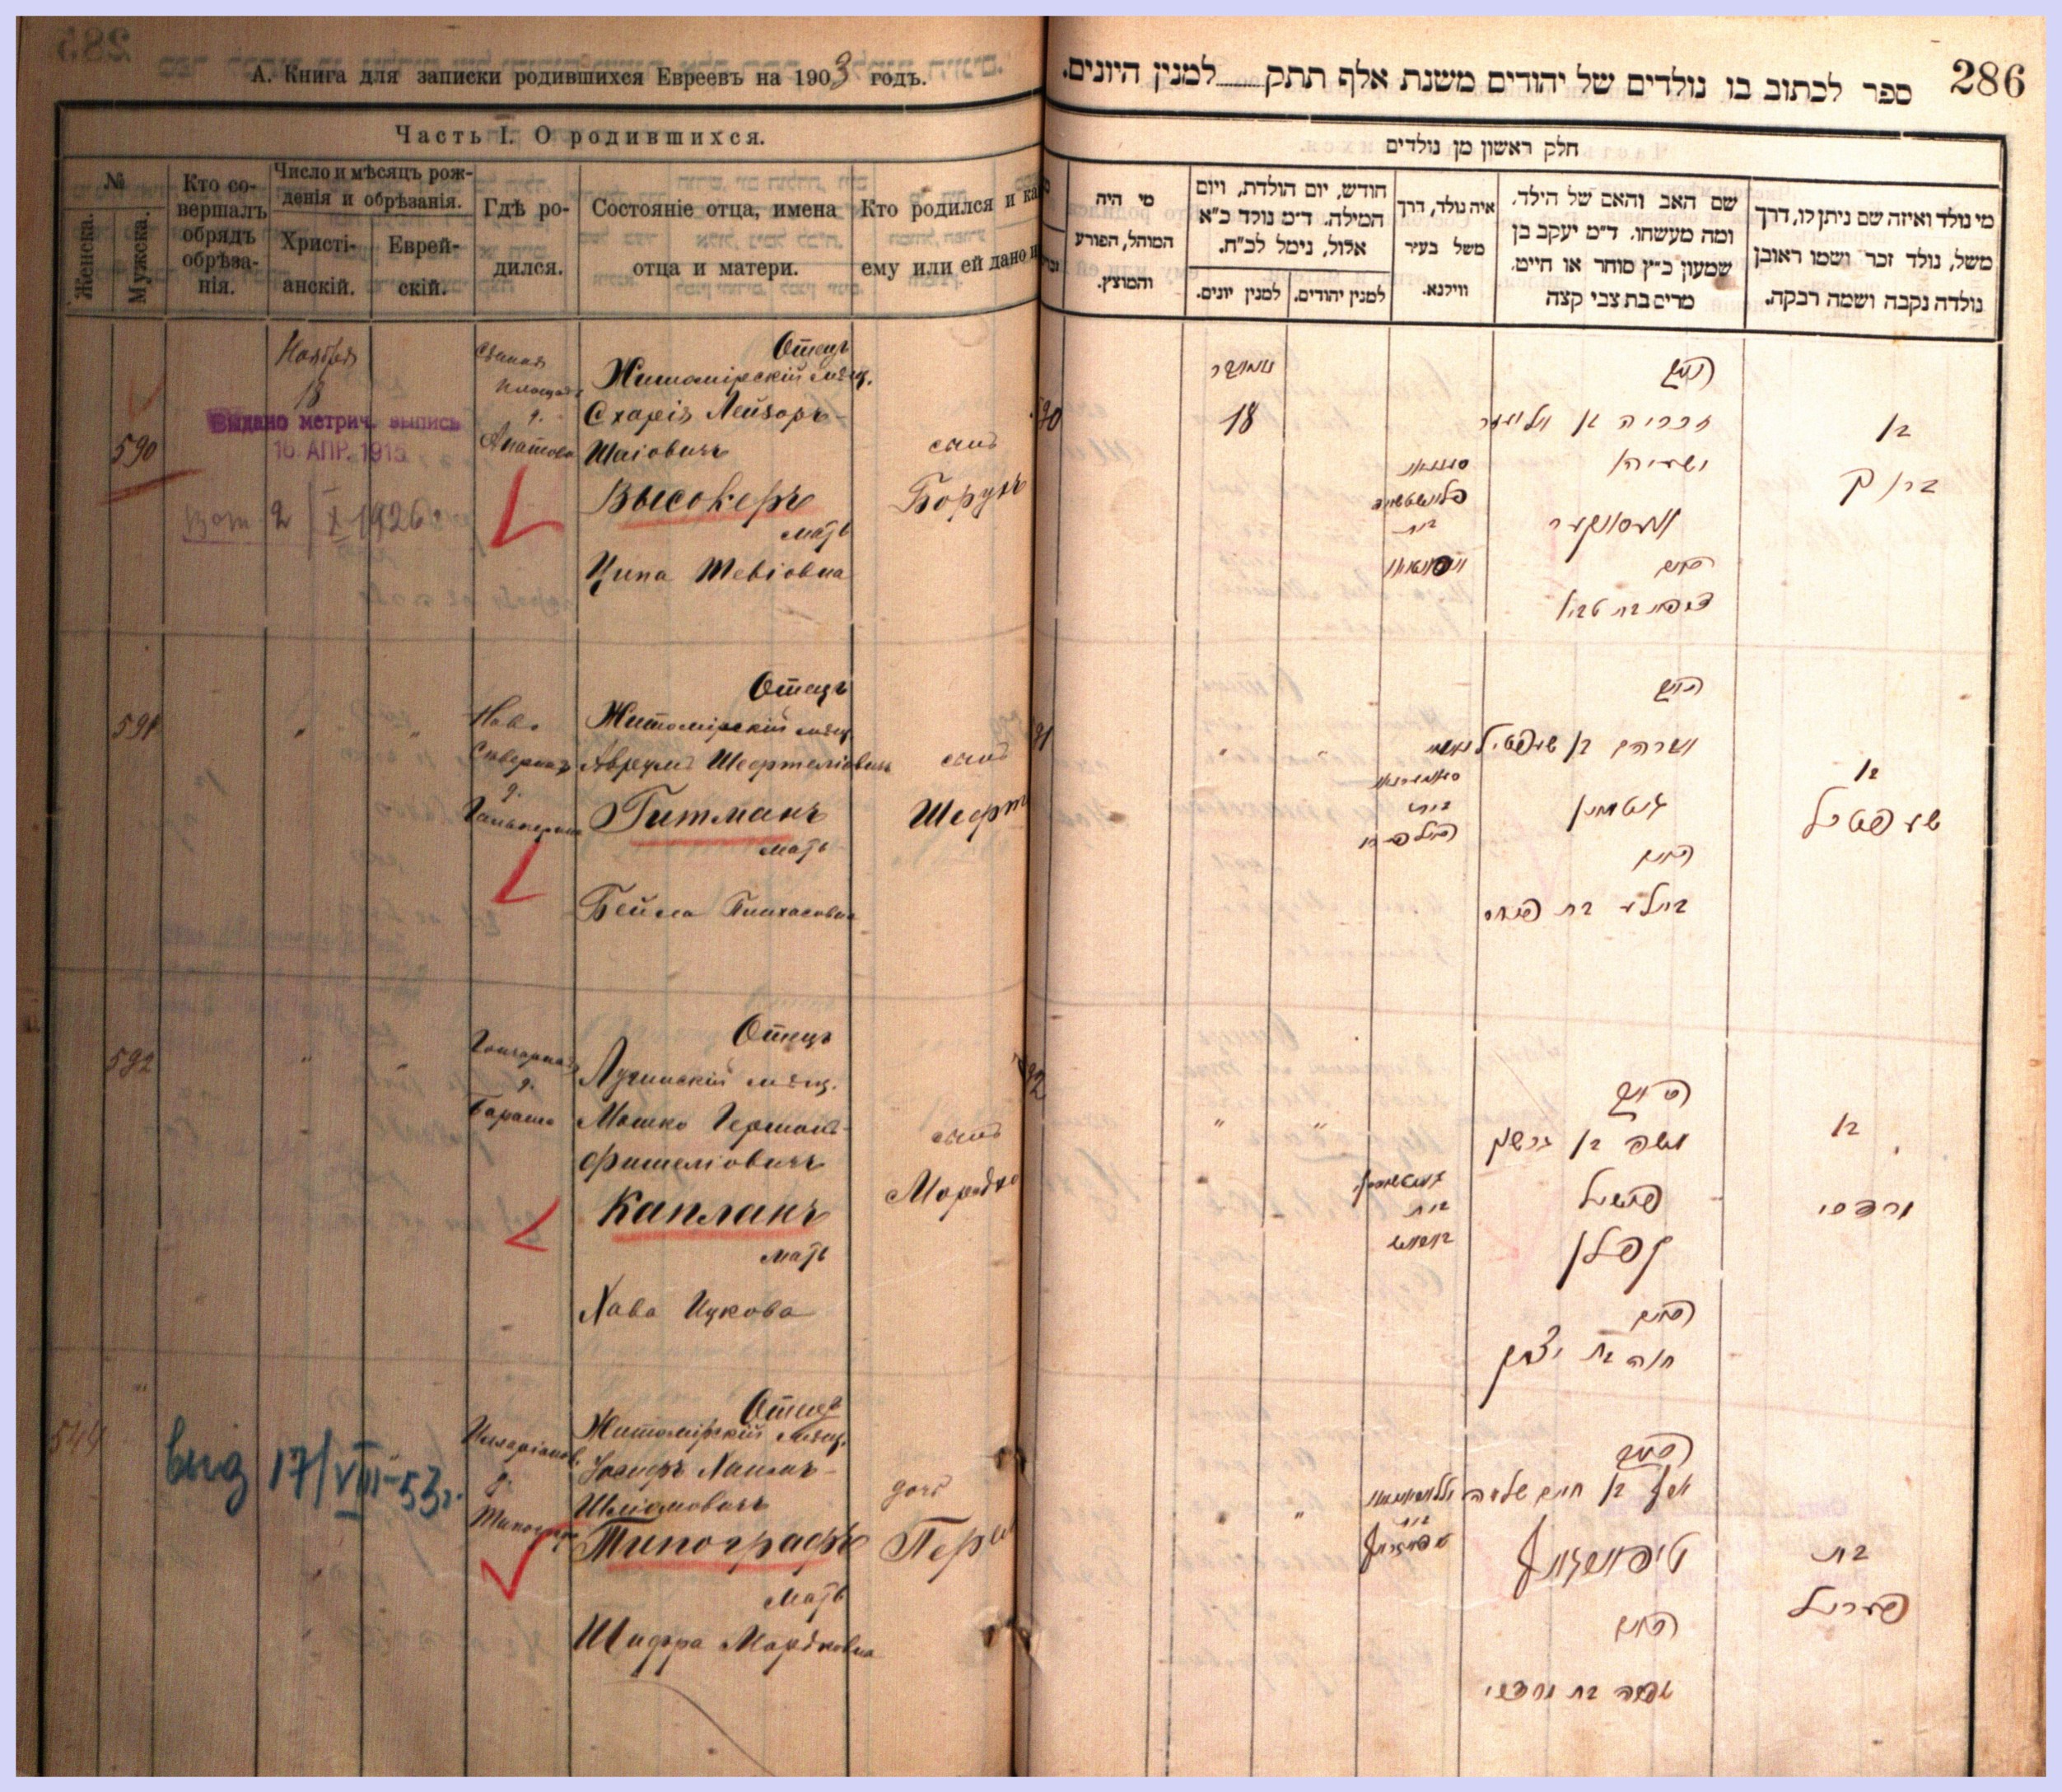 А. Книга для записки родившихся Евреевъ на 1903 годъ.
Часть I. О родившихся.
№
Женска.
Мужска.
Кто со-
вершалъ
обрядъ
обрѣза-
нія.
Число и мѣсяцъ рож-
денія и обрѣзанія.
Христі-
анскій.
Еврей-
скій.
Гдѣ ро-
дился.
Состояніе отца, имена
отца и матери.
Кто родился и ка
ему или ей дано и
590
Ноября
18
Выдано метрич. выпись
16 АПР. 1915
2/X 1926
Сѣнная
площадь
д.
Отецъ
Житомірскій мѣщ.
Схарія Лейзоръ-
Шаіовичъ
Высокеръ
мать
Ципа Тевіовна
сынъ
Борухъ
591
"
"
Ново
Сѣверная
д.
Гальперина
Отецъ
Житомірскій мѣщ.
Аврумъ Шефтеліовичъ
Гитманъ
мать
Бейла Пинхасовна
сынъ
Шефт
592
"
"
Гончарная
д.
Бараша
Отецъ
Лугинскій мѣщ.
Мошко Гершонъ-
Фишеліовичъ
Капланъ
мать
Хава Ицкова
сынъ
Мордко
544
выд 17/VIII-53г.
Иларіонов.
д.
Типограф
Отецъ
Житомірскій мѣщ.
Іосифъ Хаимъ-
Шліомовичъ
Типографъ
мать
Шифра Мордковна
дочь
Перл
286
ספר לכתוב בו נולדים של יהודים משנת אלף תתק למנין היונים.
חלק ראשון מן נולדים
מי נולד ואיזה שם ניתן לו, דרך
משל, נולד זכר ושמו ראובן
נולדה נקבה ושמה רבקה.
שם האב והאם של הילד.
ומה מעשהו. ד"מ יעקב בן
שמעון כ"ץ סוחר או חייט.
מרים בת צבי קצה
איה נולד, דרך
משל בעיר
ווילנא.
חודש, יום הולדת, ויום
המילה. ד"מ נולד כ"א
אלול, נימל לכ"ח.
למנין יהודים.
למנין יונים.
מי היה
המוהל, הפורע
והמוצץ.
בן
ברוך
האב
זכריה בן אליעזר
ישעיהו
וויסאקער
האם
ציפא בת טביל
בית
נאיאבר
18
בן
שעפטיל
האב
אברהם בן שעפטיל
גיטמאן
האם
ביילע בת פנחס
בית
"
"
בן
מרדכי
האב
משה בן גרשון
פישיל
קפלן
האם
חוה בת יצחק
בית
באראש
"
"
בת
פעריל
האב
יוסף בן חיים שלמה
טיפאגראף
האם
שפרה בת מרדכי
בית
טיפאגראף
"
"